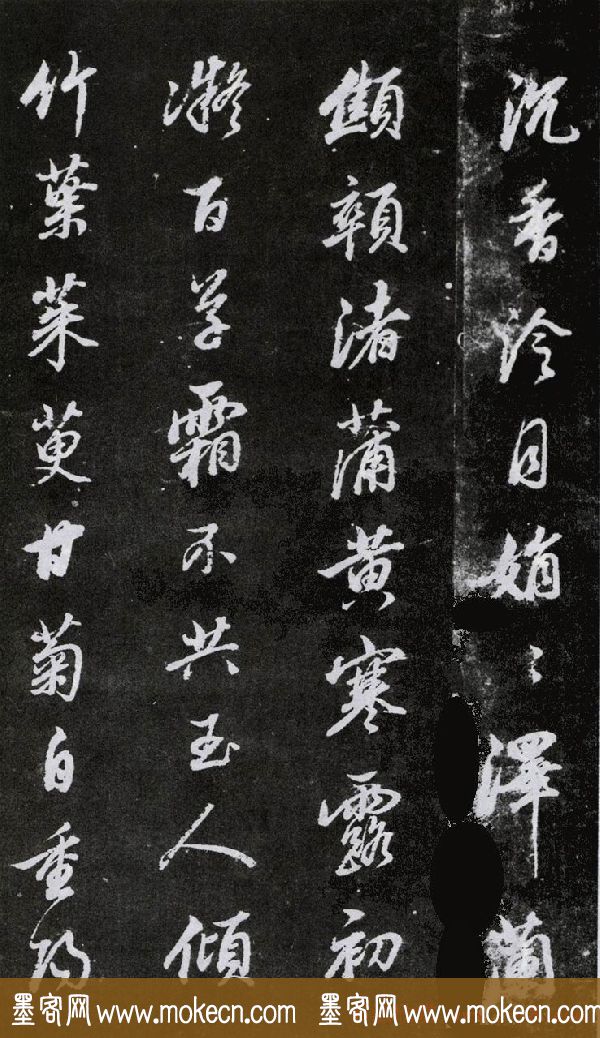 沉香泠目娟〻澤蘭
顦顇渚蒲黄寒露初
凝百草霜不共玉人傾
竹葉茱萸甘菊自重陽
墨客网 www.mokecn.com 墨客网 www.mokecn.com